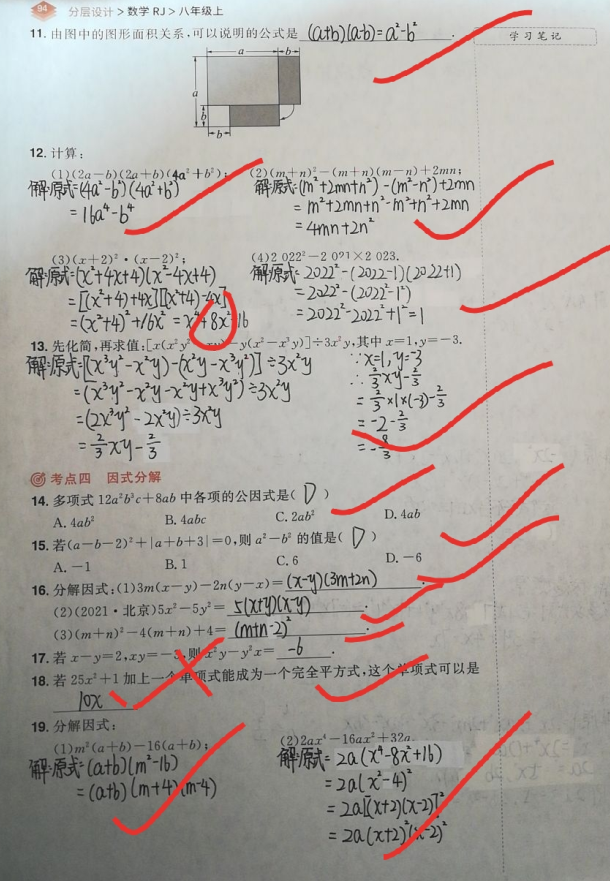 94 分层设计>数学 RJ>八年级上
学习笔记
11. 由图中的图形面积关系,可以说明的公式是 (a+b)(a-b)=a²-b².
a b
a
b
b
12. 计算:
(1)(2a-b)(2a+b)(4a²+b²);
解:原式=(4a²-b²)(4a²+b²)
=16a⁴-b⁴
(2)(m+n)²-(m+n)(m-n)+2mn;
解:原式=(m²+2mn+n²)-(m²-n²)+2mn
=m²+2mn+n²-m²+n²+2mn
=4mn+2n²
(3)(x+2)²·(x-2)²;
解:原式=(x²+4x+4)(x²-4x+4)
=[(x²+4)+4x][(x²+4)-4x]
=(x²+4)²+16x²=x⁴+8x²16
(4)2 022²-2 021×2 023.
解:原式=2022²-(2022-1)(2022+1)
=2022²-(2022²-1²)
=2022²-2022²+1²=1
13. 先化简,再求值:[x(x²y²-xy)-y(x²-x³y)]÷3x²y,其中x=1,y=-3.
解:原式=[(x³y²-x²y)-(x²y-x³y²)]÷3x²y
=(x³y²-x²y-x²y+x³y²)÷3x²y
=(2x³y²-2x²y)÷3x²y
=2/3xy-2/3
∵x=1,y=-3
∴2/3xy-2/3
=2/3×1×(-3)-2/3
=-2-2/3
=-8/3
考点四 因式分解
14. 多项式12a²b³c+8ab中各项的公因式是( D )
A. 4ab² B. 4abc C. 2ab² D. 4ab
15. 若(a-b-2)²+|a+b+3|=0,则a²-b²的值是( D )
A. -1 B. 1 C. 6 D. -6
16. 分解因式:(1)3m(x-y)-2n(y-x)=(x-y)(3m+2n).
(2)(2021·北京)5x²-5y²=5(x+y)(x-y).
(3)(m+n)²-4(m+n)+4=(m+n-2)².
17. 若x-y=2,xy=-3,则x²y-y²x= -6.
18. 若25x²+1加上一个单项式能成为一个完全平方式,这个单项式可以是
10x.
19. 分解因式:
(1)m²(a+b)-16(a+b);
解:原式=(a+b)(m²-16)
=(a+b)(m+4)(m-4)
(2)2ax⁴-16ax²+32a.
解:原式=2a(x⁴-8x²+16)
=2a(x²-4)²
=2a[(x+2)(x-2)]²
=2a(x+2)²(x-2)²